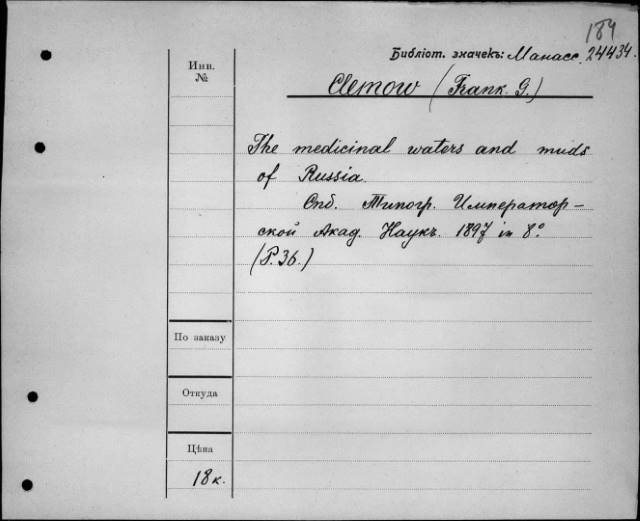 184
Библіот. значекъ: Манасс. 24434.
Инв.
№
Clemow (Frank. G.)
The medicinal waters and muds
of Russia.
Спб. Типогр. Император-
ской Акад. Наукъ. 1897 in 8°
(P. 36.)
По заказу
Откуда
Цѣна
18 к.